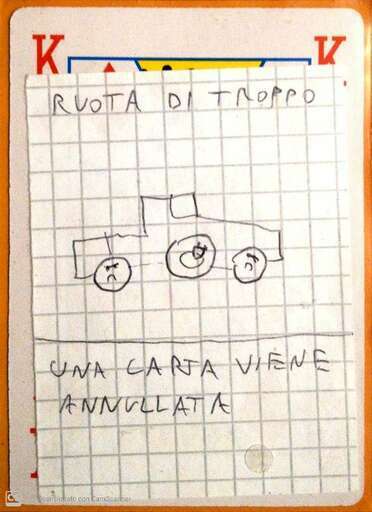 K K
RUOTA DI TROPPO
UNA CARTA VIENE
ANNULLATA
CS Scansionato con CamScanner